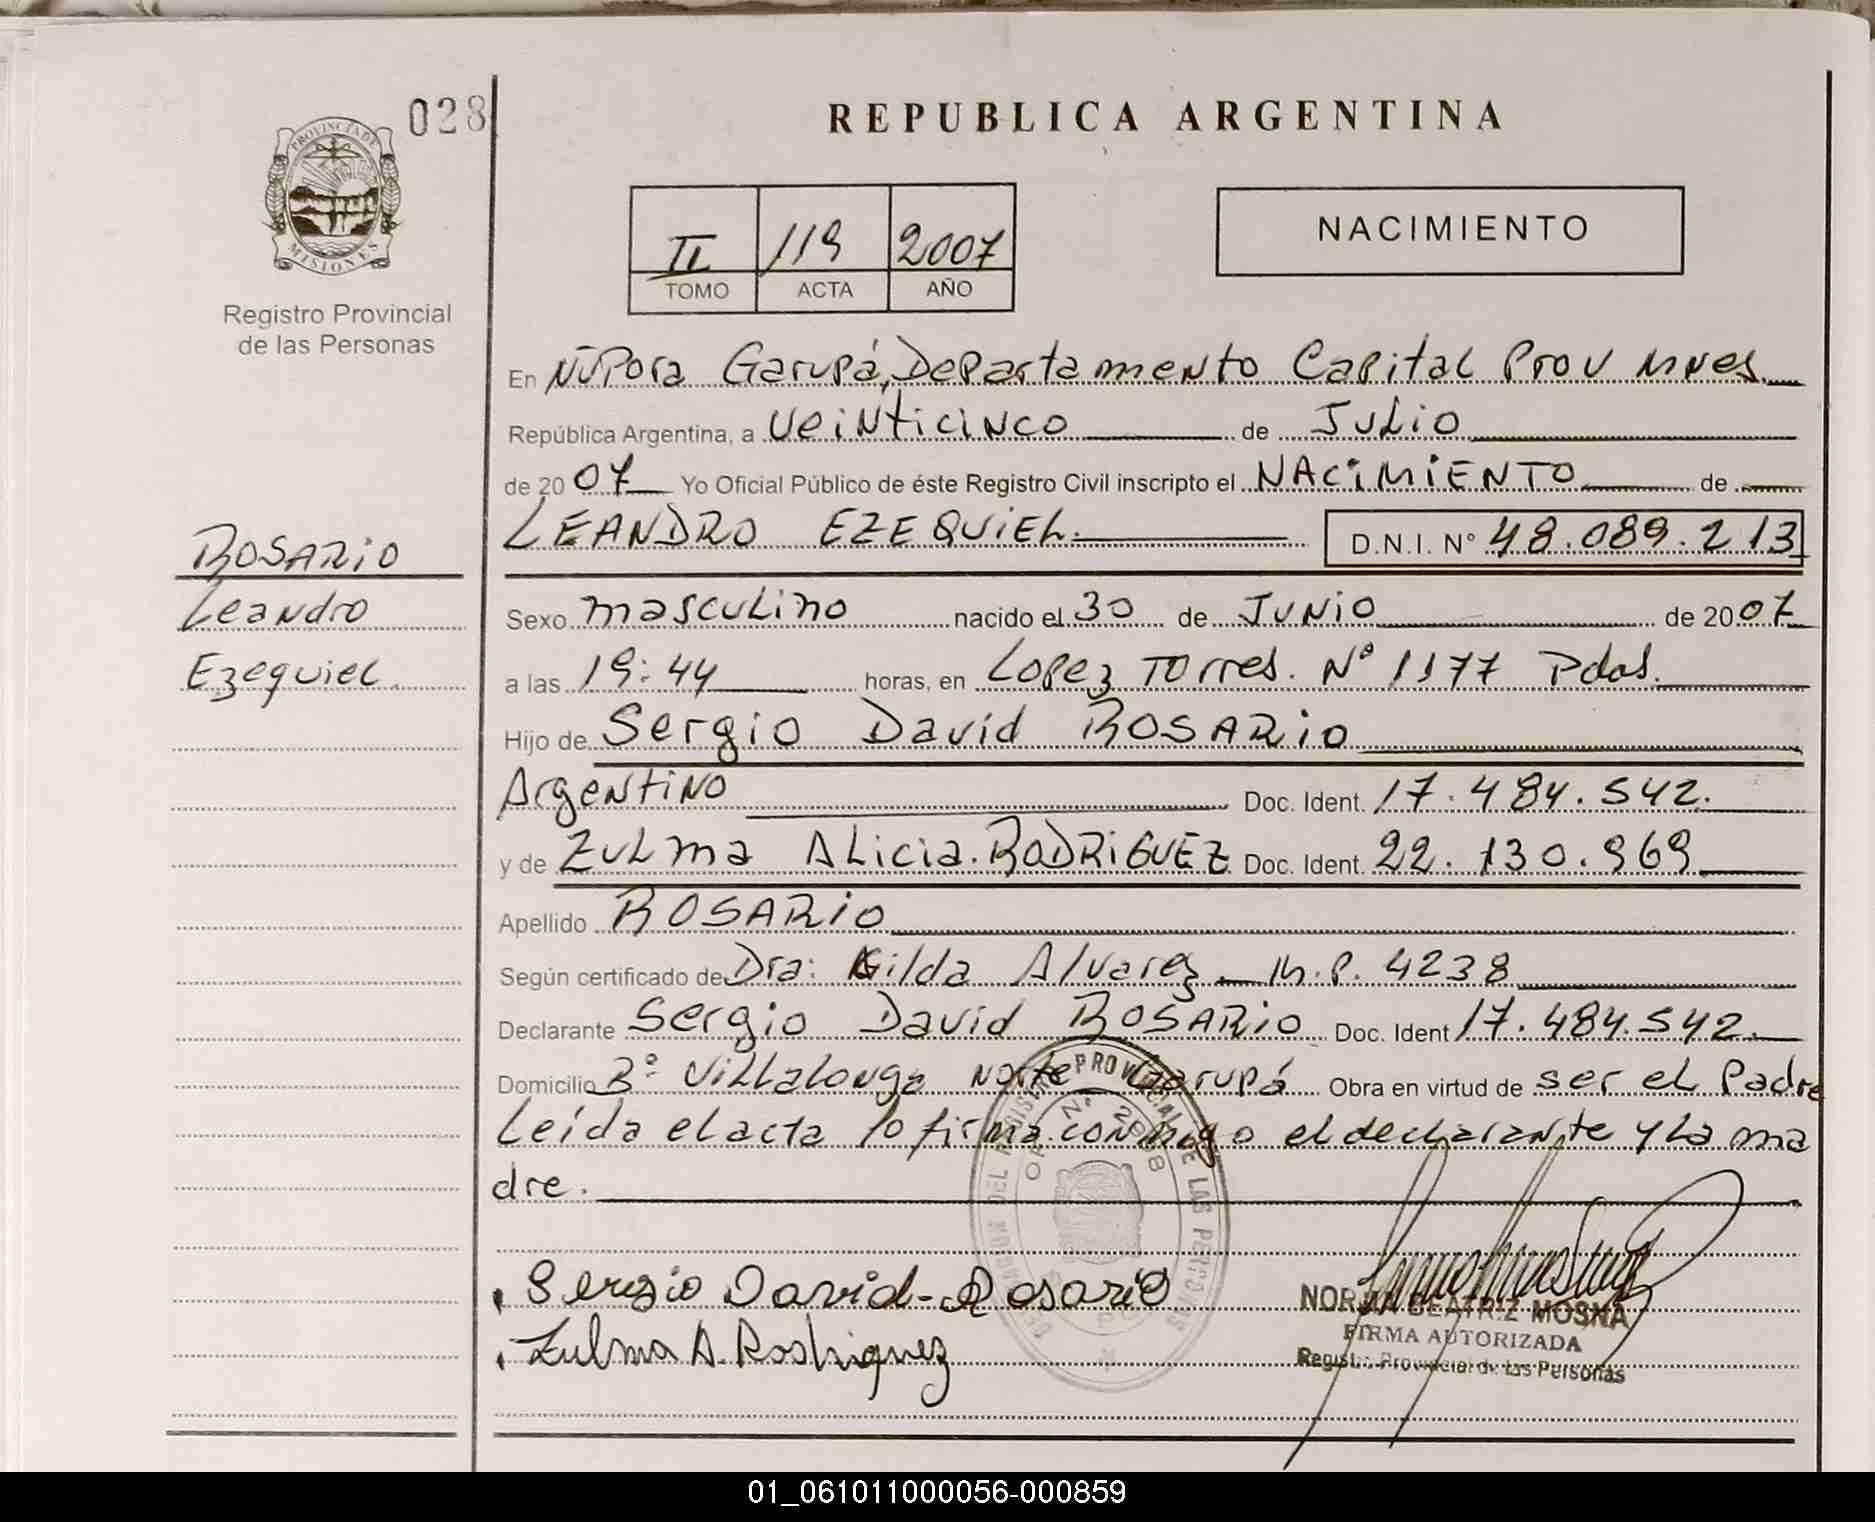 028
REPUBLICA ARGENTINA
PROVINCIA DE
MISIONES
Registro Provincial
de las Personas
II 119 2007
TOMO ACTA AÑO
NACIMIENTO
En Ñu Pora Garupá, Departamento Capital Prov Mnes.
República Argentina, a veinticinco de Julio
de 2007 Yo Oficial Público de éste Registro Civil inscripto el NACIMIENTO de
LEANDRO EZEQUIEL. D.N.I. N° 48.089.213
ROSARIO
Leandro
Ezequiel
Sexo masculino nacido el 30 de JUNIO de 2007
a las 19:44 horas, en Lopez Torres. N° 1177 Pdas.
Hijo de Sergio David ROSARIO
Argentino Doc. Ident. 17.484.542.
y de Zulma Alicia. RODRIGUEZ Doc. Ident. 22.130.969
Apellido ROSARIO
Según certificado de Dra: Gilda Alvarez M.P. 4238
Declarante Sergio David ROSARIO Doc. Ident 17.484.542.
Domicilio B° Villalonga norte Garupá Obra en virtud de ser el Padre
Leída el acta lo firma conmigo el declarante y la ma
dre.
Sergio David Rosario
Zulma A. Rodriguez
NORMA BEATRIZ MOSNA
FIRMA AUTORIZADA
Regist. Provincial de las Personas
01_061011000056-000859